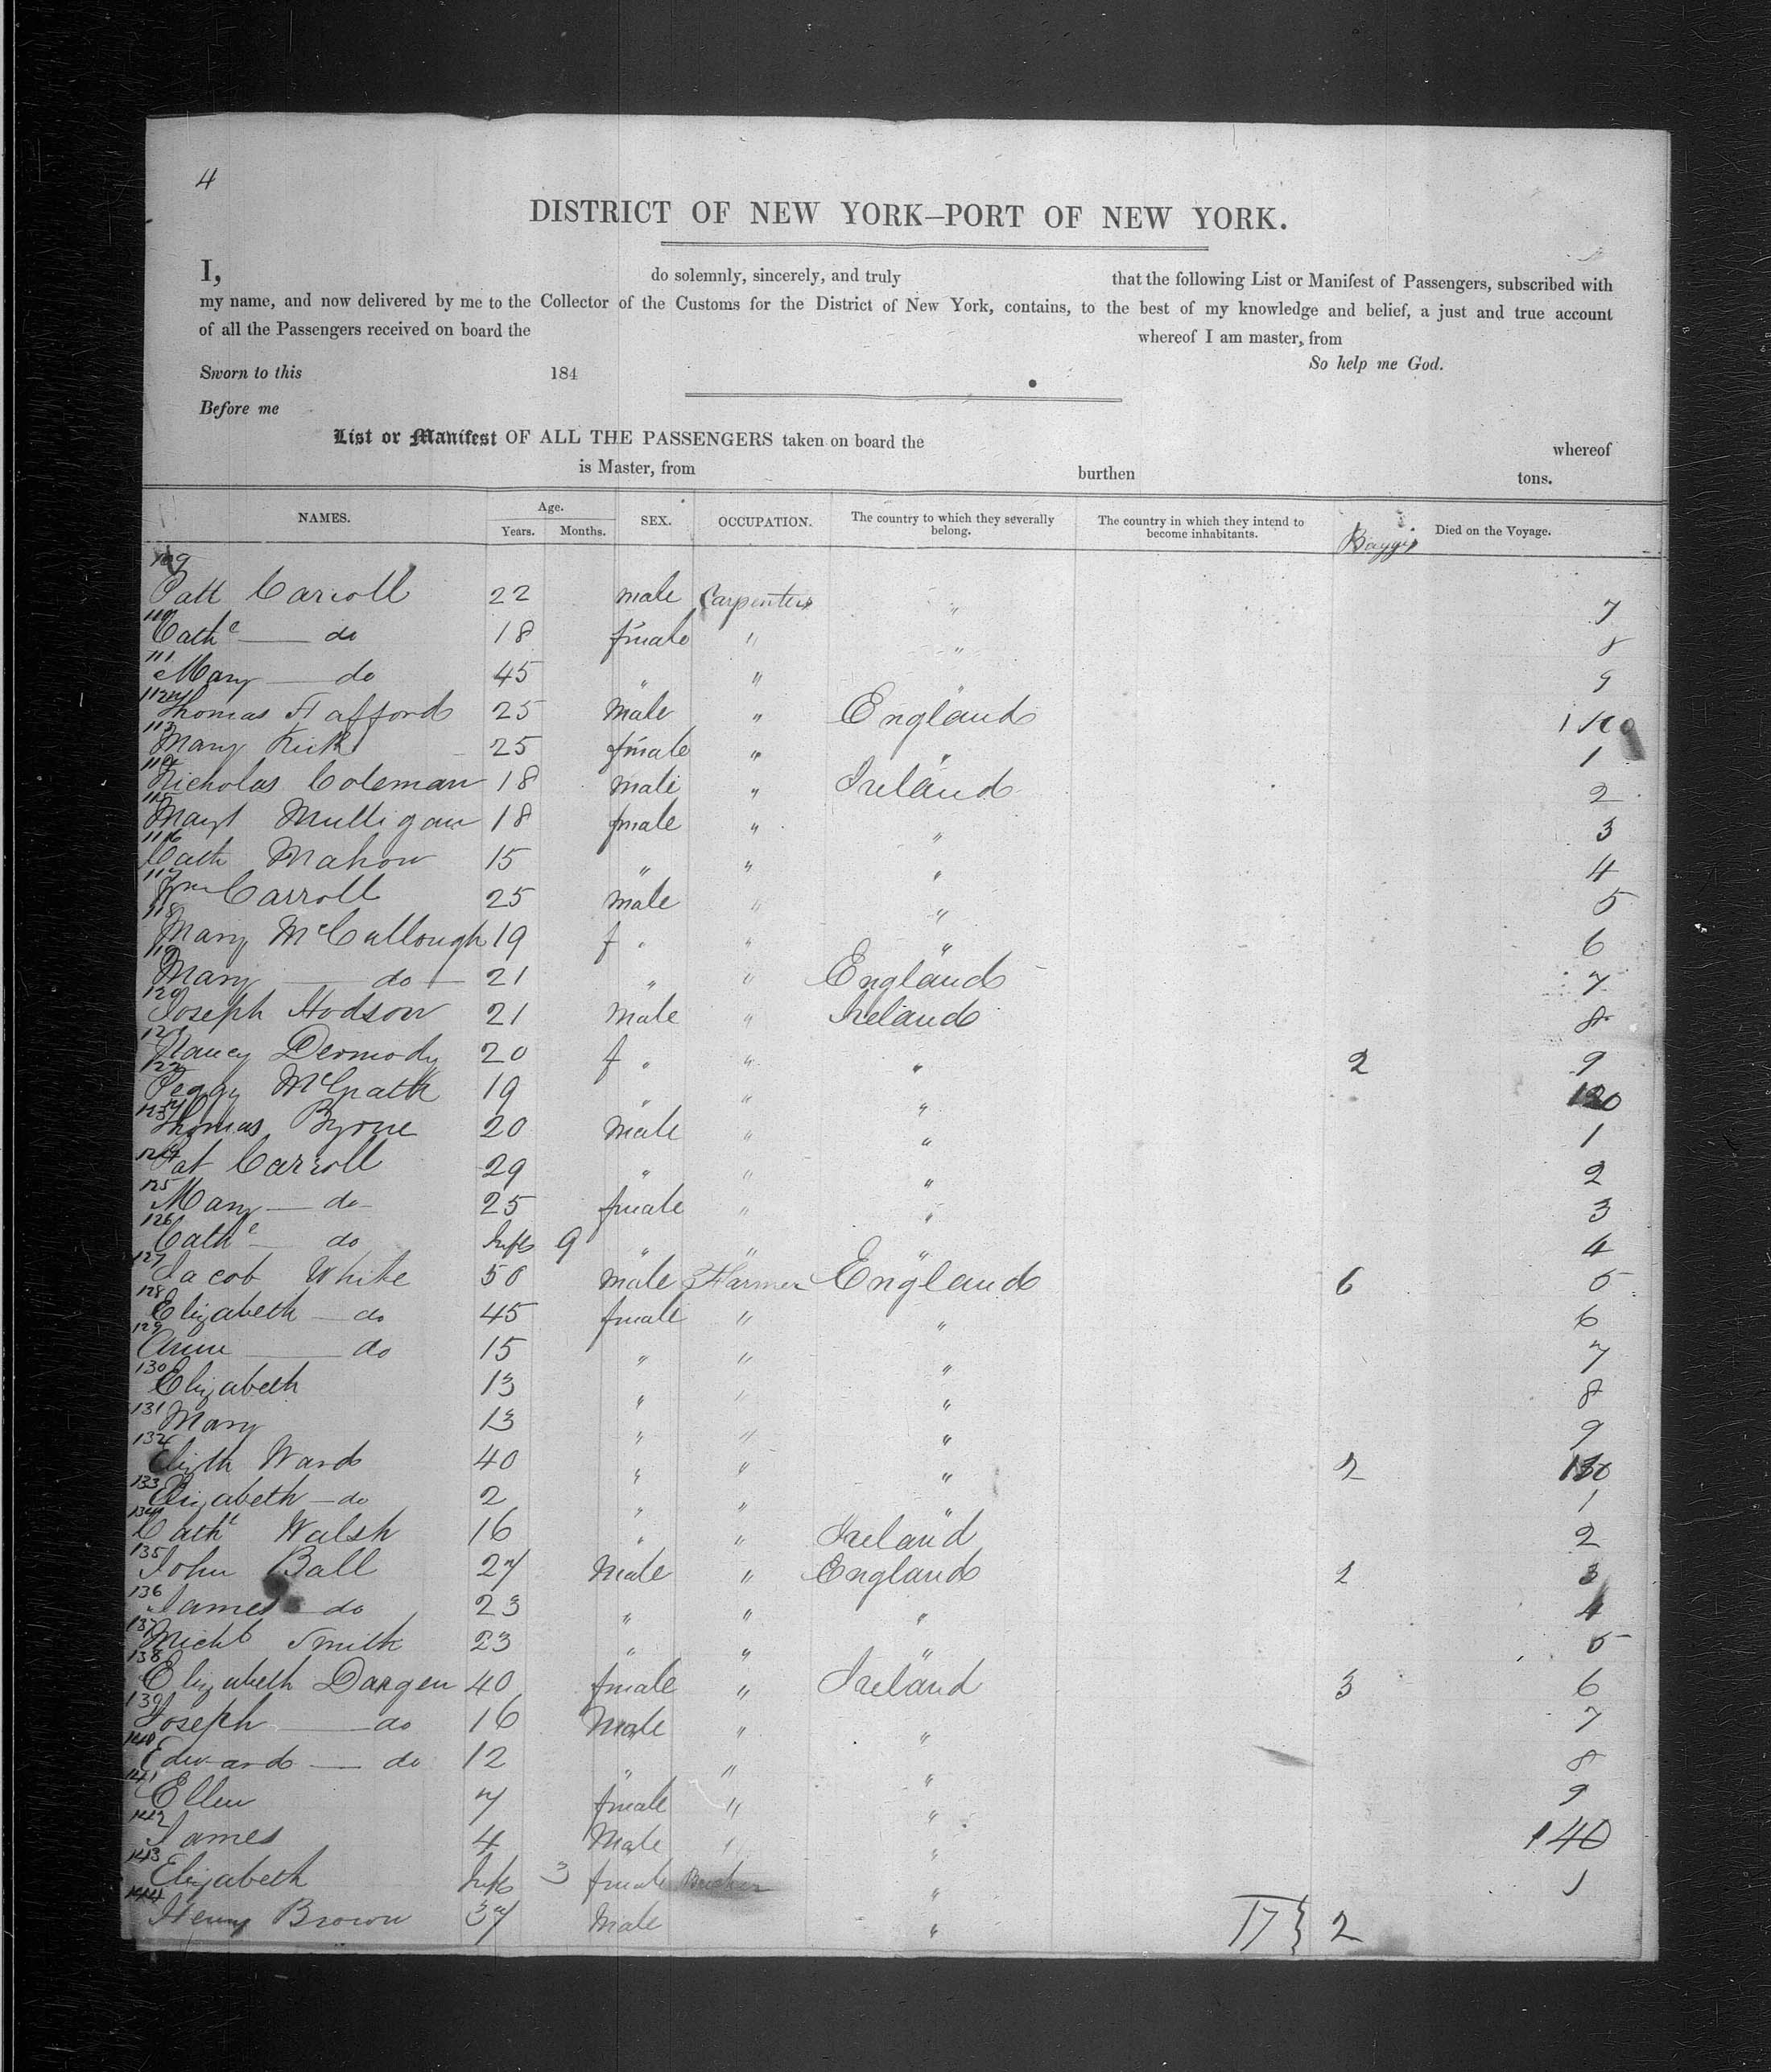 4
DISTRICT OF NEW YORK–PORT OF NEW YORK.
I, do solemnly, sincerely, and truly that the following List or Manifest of Passengers, subscribed with
my name, and now delivered by me to the Collector of the Customs for the District of New York, contains, to the best of my knowledge and belief, a just and true account
of all the Passengers received on board the whereof I am master, from
So help me God.
Sworn to this 184
Before me
List or Manifest OF ALL THE PASSENGERS taken on board the whereof
is Master, from burthen tons.
NAMES. Age. Years. Months. SEX. OCCUPATION. The country to which they severally belong. The country in which they intend to become inhabitants. Died on the Voyage.
109 Patt Carroll 22 male Carpenters " 7
110 Cathe do 18 female " " 8
111 Mary do 45 " " 9
112 Thomas Stafford 25 Male " England 110
113 Mary Kirk 25 female " " 1
114 Nicholas Coleman 18 male " Ireland 2
115 Margt Mulligan 18 fmale " " 3
116 Cath Mahon 15 " " " 4
117 Wm Carroll 25 male " " 5
118 Mary McCullough 19 f " " " 6
119 Mary do 21 " " England 7
120 Joseph Hodson 21 Male " Ireland 8
121 Nancy Dermody 20 f " " " 2 9
122 Peggy McGrath 19 " " " 120
123 Thomas Byrne 20 Male " " 1
124 Pat Carroll 29 " " " 2
125 Mary do 25 fmale " " 3
126 Cathe do Inft 9 " " " 4
127 Jacob White 50 male Farmer England 6 5
128 Elizabeth do 45 fmale " " 6
129 Anne do 15 " " " 7
130 Elizabeth 13 " " " 8
131 Mary 13 " " " 9
132 Elizth Ward 40 " " " 2 130
133 Elizabeth do 2 " " " 1
134 Catht Walsh 16 " " Ireland 2
135 John Ball 27 Male " England 2 3
136 James do 23 " " " 4
137 Michl Smith 23 " " " 5
138 Elizabeth Dargen 40 fmale " Ireland 3 6
139 Joseph do 16 Male " " 7
140 Edward do 12 " " " 8
141 Ellen 7 fmale " " 9
142 James 4 Male " " 140
143 Elizabeth Inft 3 fmale " 1
144 Henry Brown 37 Male " 17 } 2